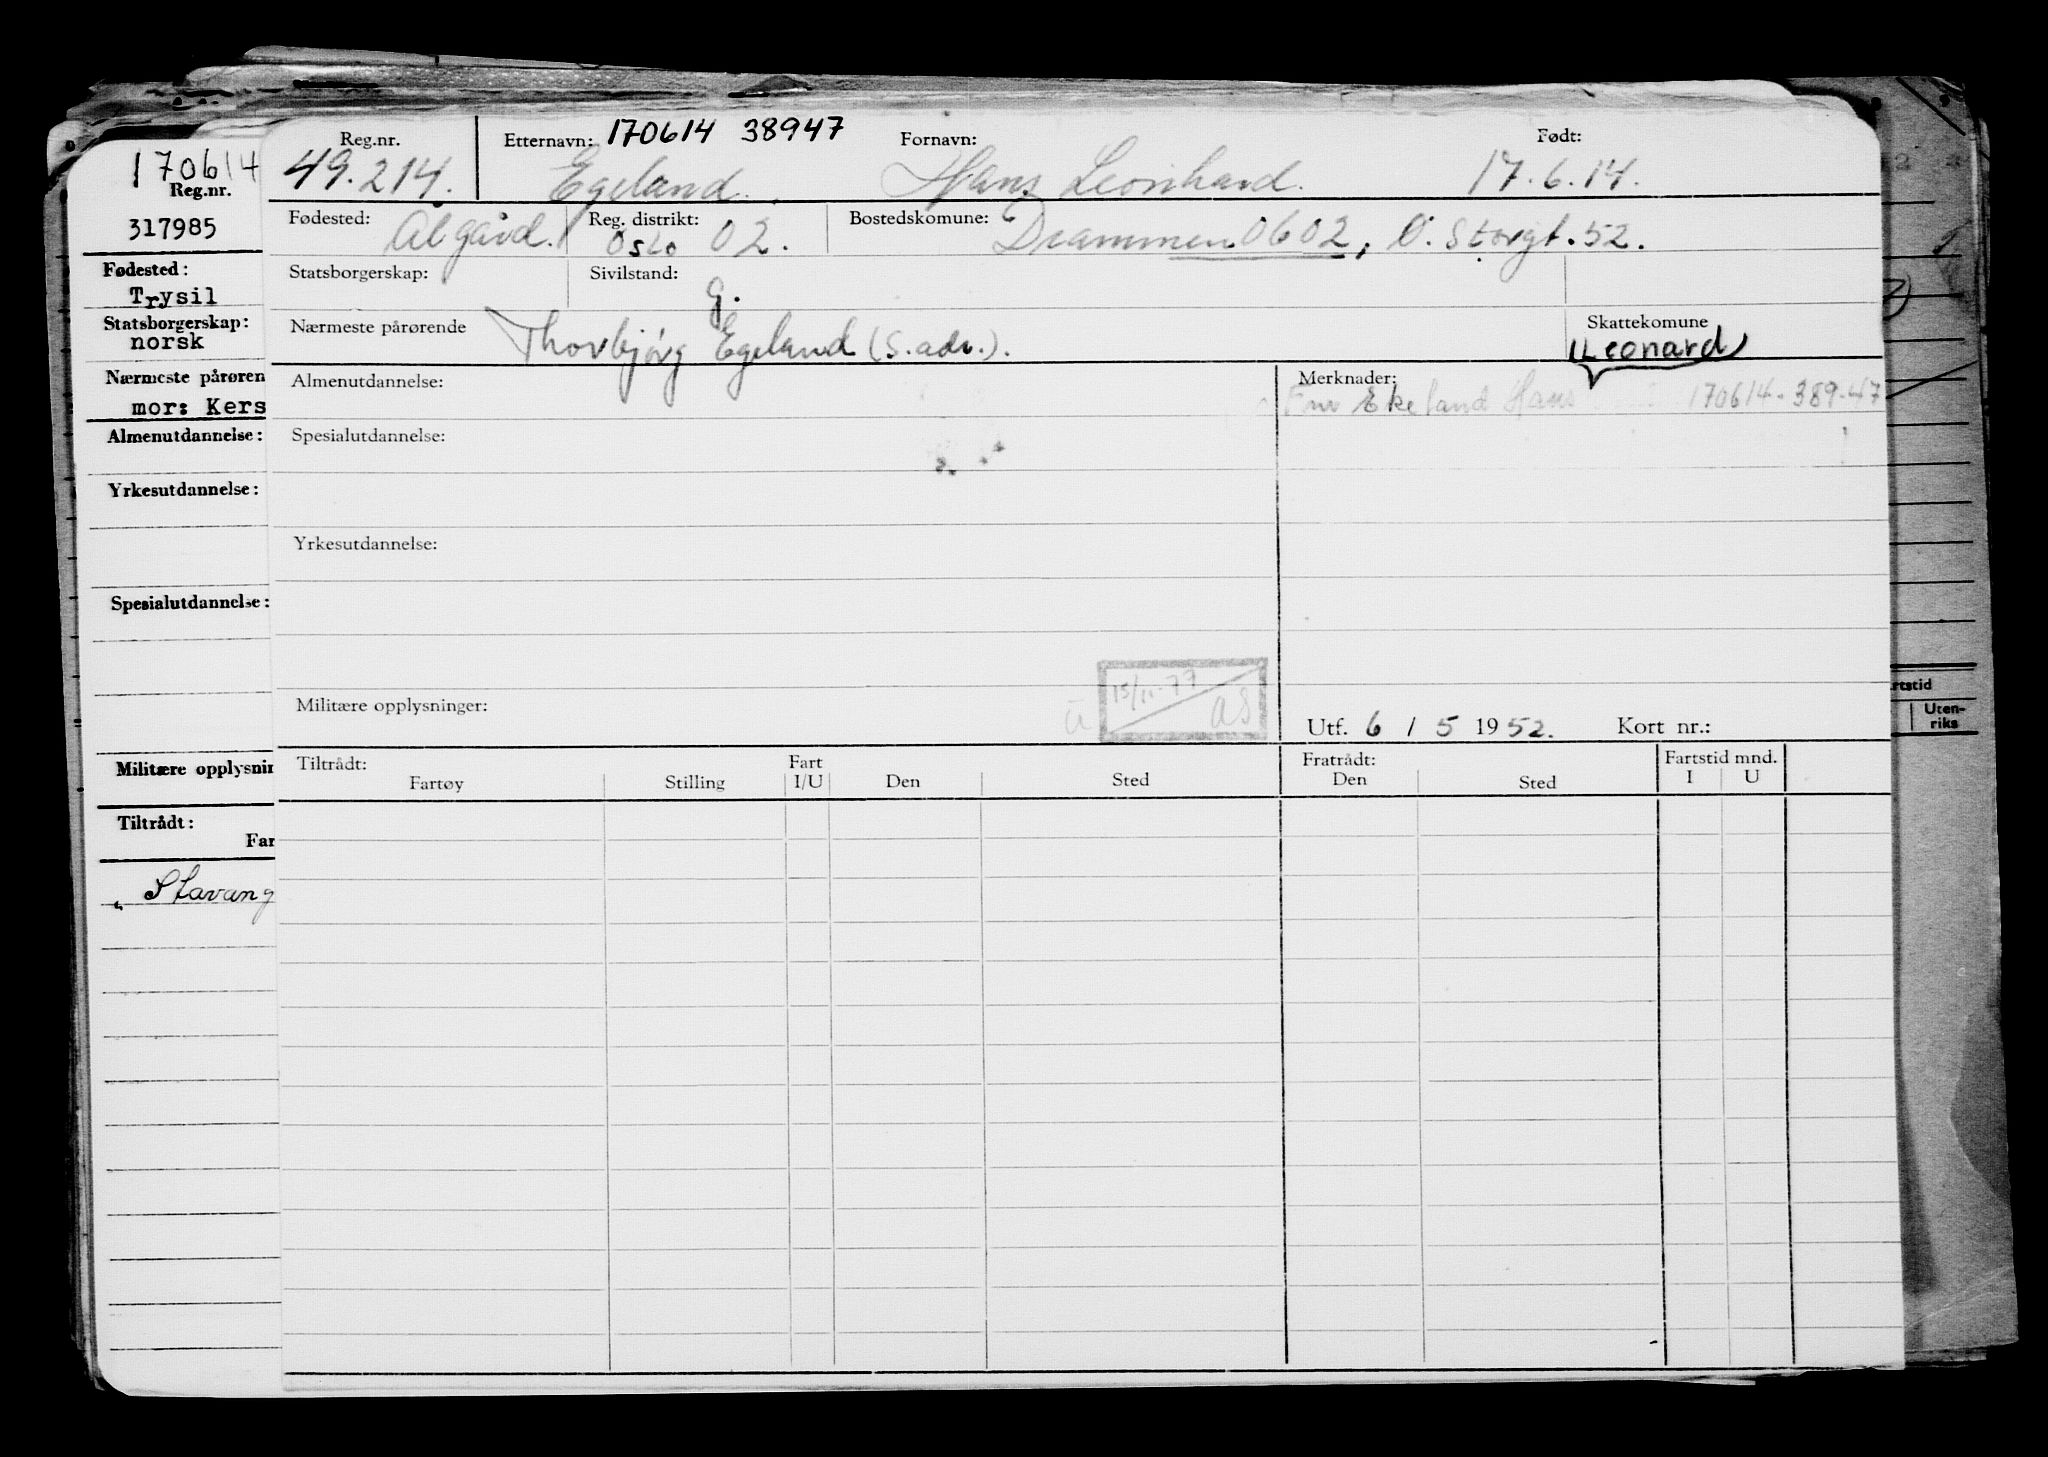 170614
Reg.nr.
317985
Fødested:
Trysil
Statsborgerskap:
norsk
Nærmeste pårøren
mor: Kers
Almenutdannelse:
Yrkesutdannelse:
Spesialutdannelse:
Militære opplysnin
Tiltrådt:
Far
Stavang
Reg.nr. Etternavn: 170614 38947 Fornavn: Født:
49.214. Egeland. Hans Leonhard. 17.6.14.
Fødested: Ålgård. Reg. distrikt: Oslo 02. Bostedskomune: Drammen 0602, Ø. Storgt. 52.
Statsborgerskap: Sivilstand: g.
Nærmeste pårørende Thorbjørg Egeland (s. adr.). Skattekomune
Leonard
Almenutdannelse: Merknader:
Ekeland Hans 170614-389-47
Spesialutdannelse:
Yrkesutdannelse:
15/11-77
Militære opplysninger: Utf. 6 / 5 1952. Kort nr.:
Tiltrådt: Fart Fratrådt: Fartstid mnd.
Fartøy Stilling I/U Den Sted Den Sted I U
rtstid
Uten-
riks